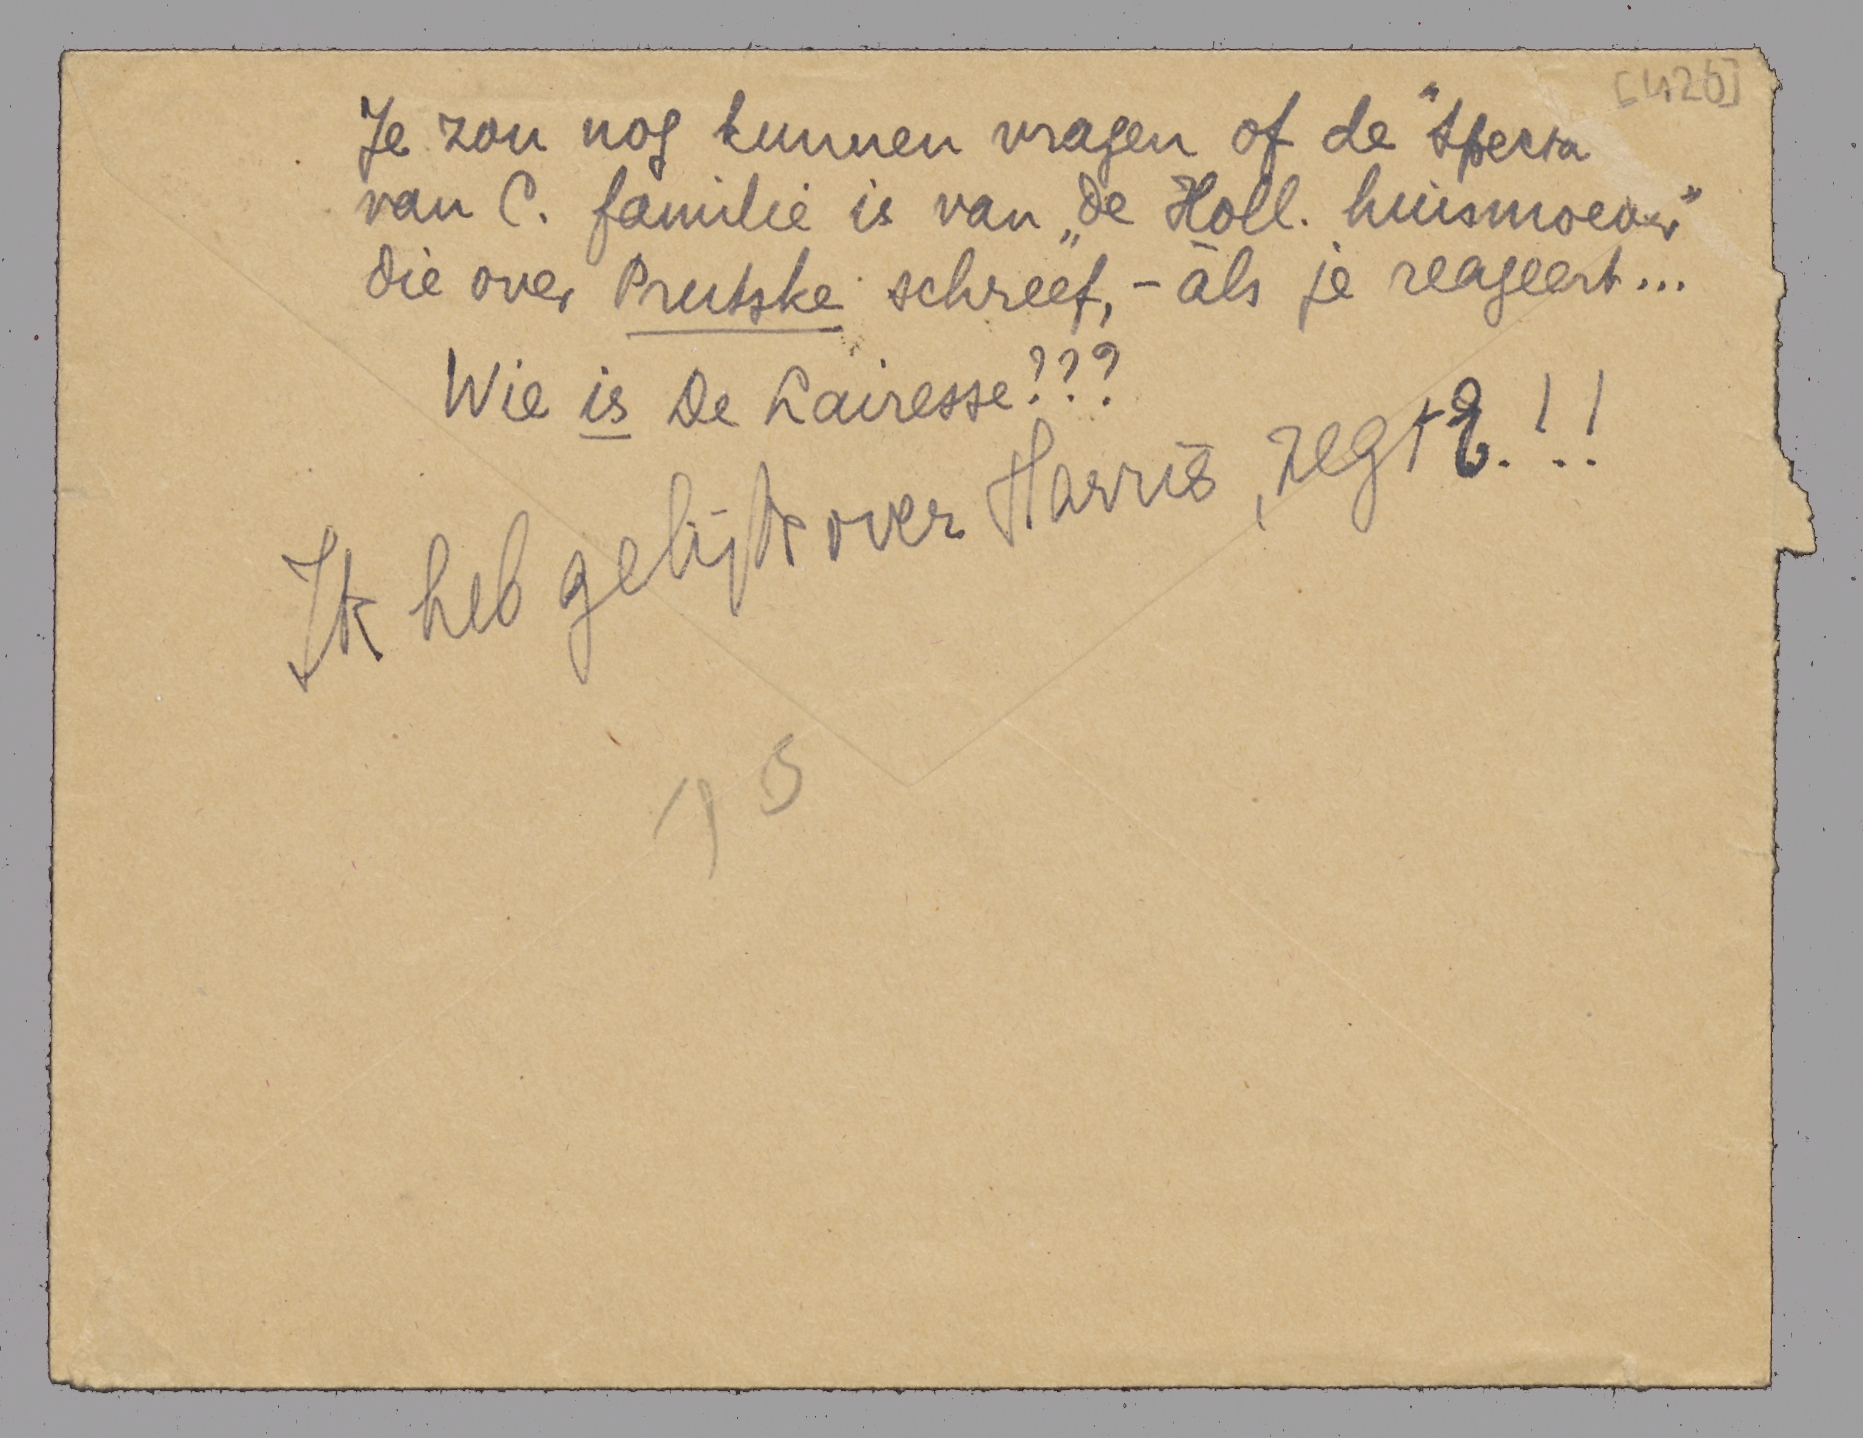 [426]
Je zou nog kunnen vragen of de "Specta
van C. familie is van „de Holl. huismoeder"
die over Prutske schreef, - àls je reageert...
Wie is De Lairesse???
Ik heb gelijk over Harris, zegt E.!!